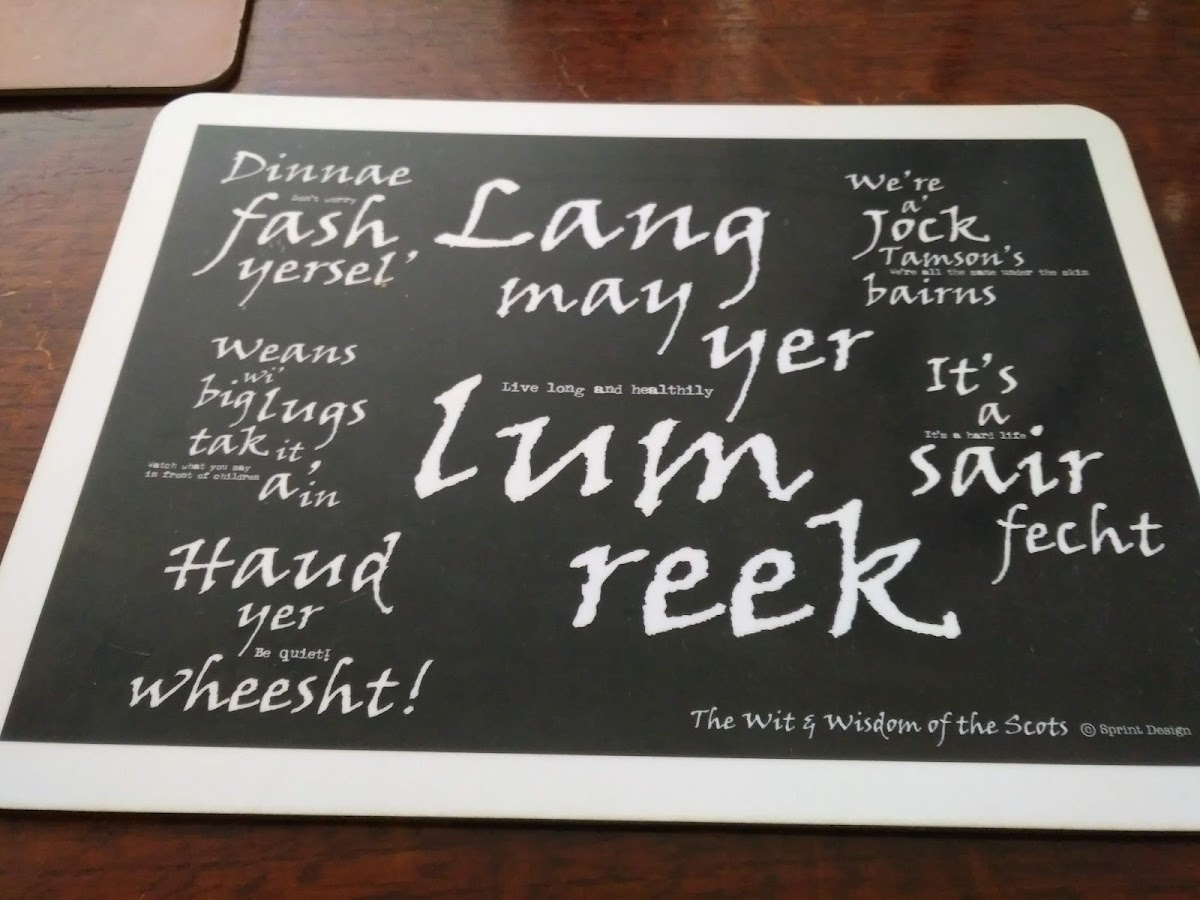 Dinnae
Don't worry
fash
yersel'
Lang
may
yer
Live long and healthily
lum
reek
We're
a'
Jock
Tamson's
We're all the same under the skin
bairns
Weans
wi'
big lugs
tak it
Watch what you say
in front of children
a' in
It's
a
It's a hard life
sair
fecht
Haud
yer
Be quiet!
wheesht!
The Wit & Wisdom of the Scots © Sprint Design